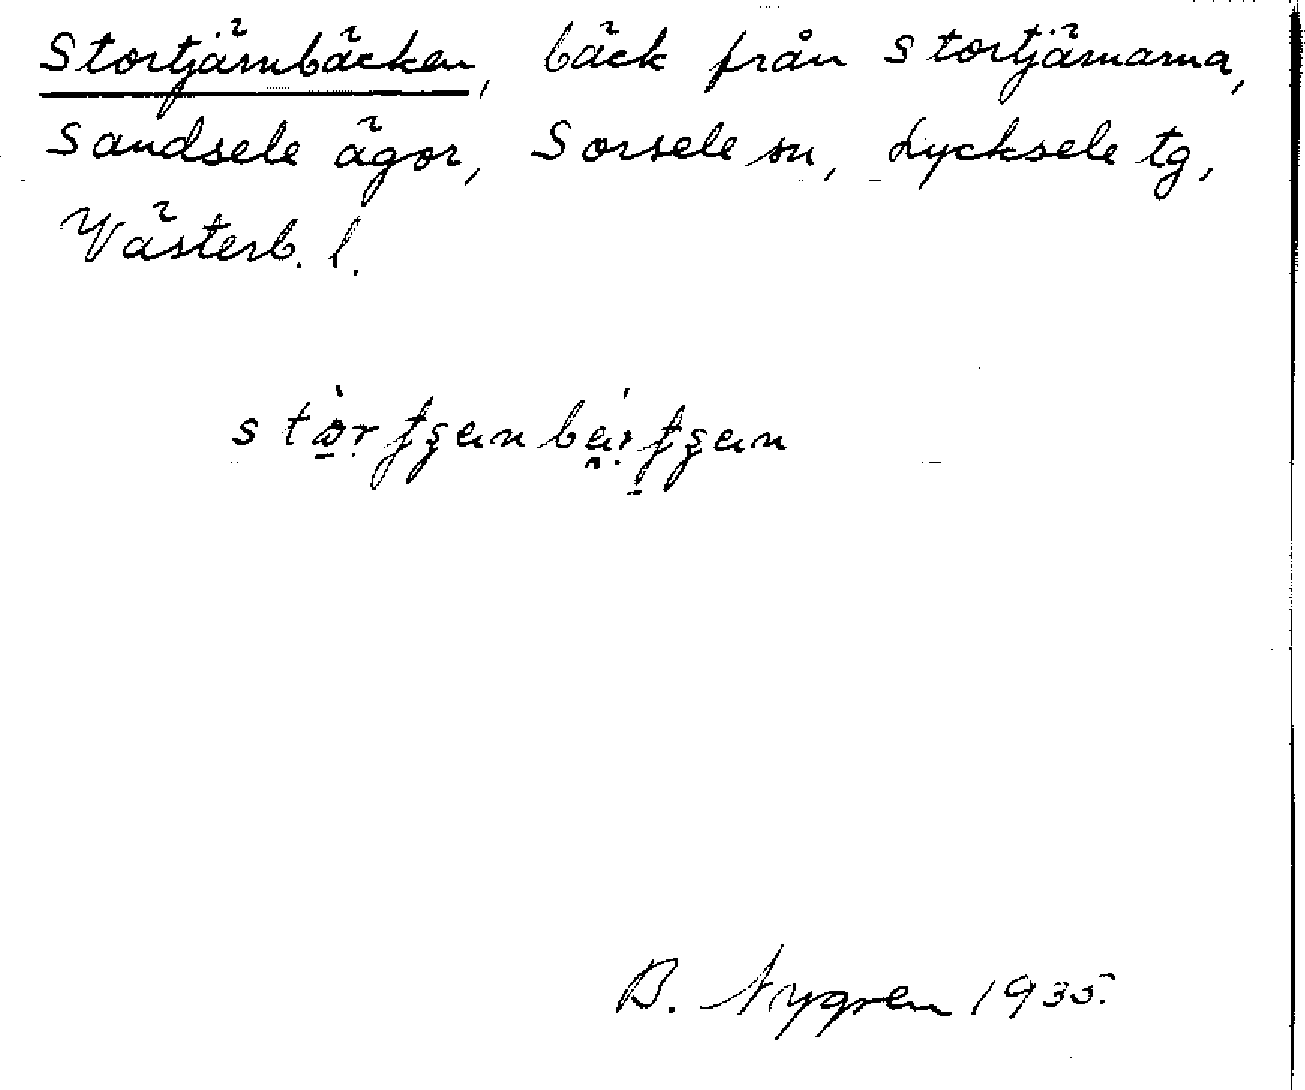 Stortjärnbäcken, bäck från Stortjärnarna,
Sandsele ägor, Sorsele sn, Lycksele tg,
Västerb. l.
B. Nygren 1935.